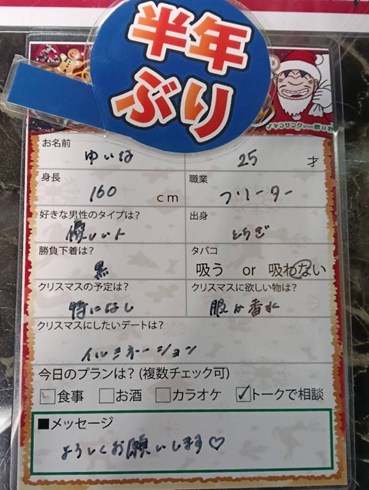 半年
ぶり
お名前
ゆいな 25 才
身長 職業
160 cm フリーター
好きな男性のタイプは? 出身
優しい人 とちぎ
勝負下着は? タバコ
黒 吸う or 吸わない
クリスマスの予定は? クリスマスに欲しい物は?
特になし 服か香水
クリスマスにしたいデートは?
イルミネーション
今日のプランは?(複数チェック可)
食事 お酒 カラオケ トークで相談
■メッセージ
よろしくお願いします♡